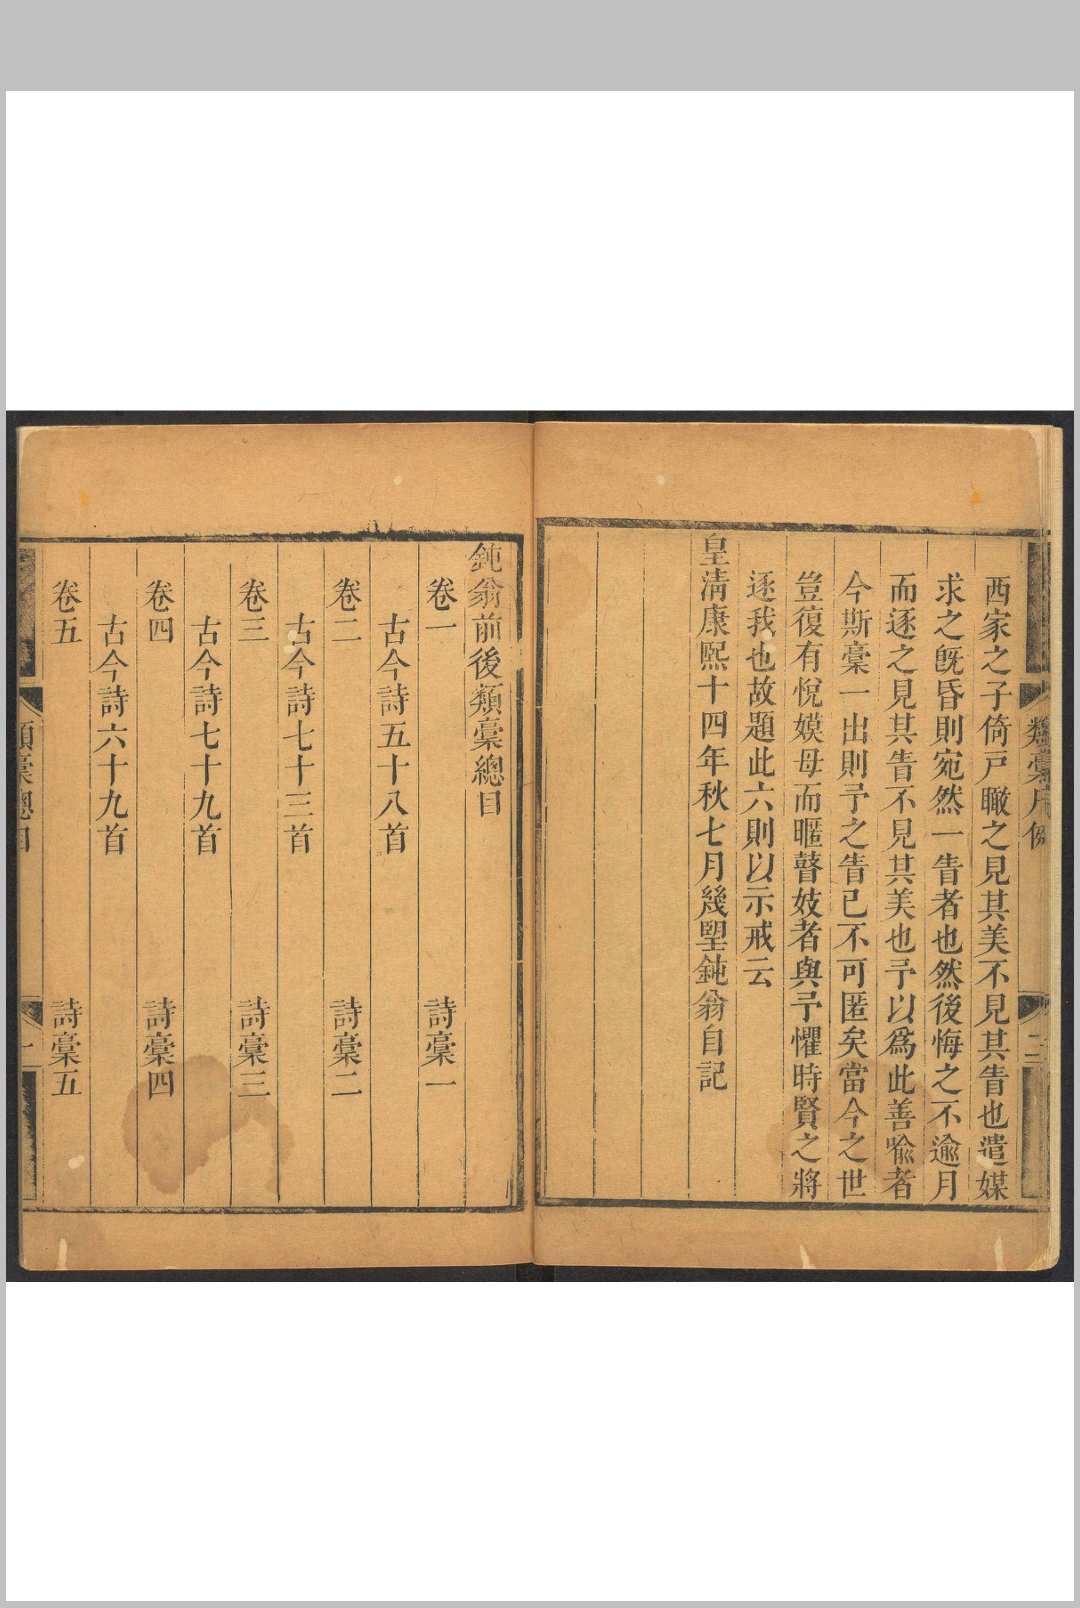 西家之子倚戸瞰之見其美不見其眚也遣媒
求之旣昏則宛然一眚者也然後悔之不逾月
而逐之見其眚不見其美也予以爲此善喩者
今斯稾一出則予之眚已不可匿矣當今之世
豈復有悅嫫母而暱瞽妓者與予懼時賢之將
逐我也故題此六則以示戒云
皇淸康熙十四年秋七月幾朢鈍翁自記
鈍翁前後類稾總目
卷一 詩稾一
古今詩五十八首
卷二 詩稾二
古今詩七十三首
卷三 詩稾三
古今詩七十九首
卷四 詩稾四
古今詩六十九首
卷五 詩稾五
類稾總目
一